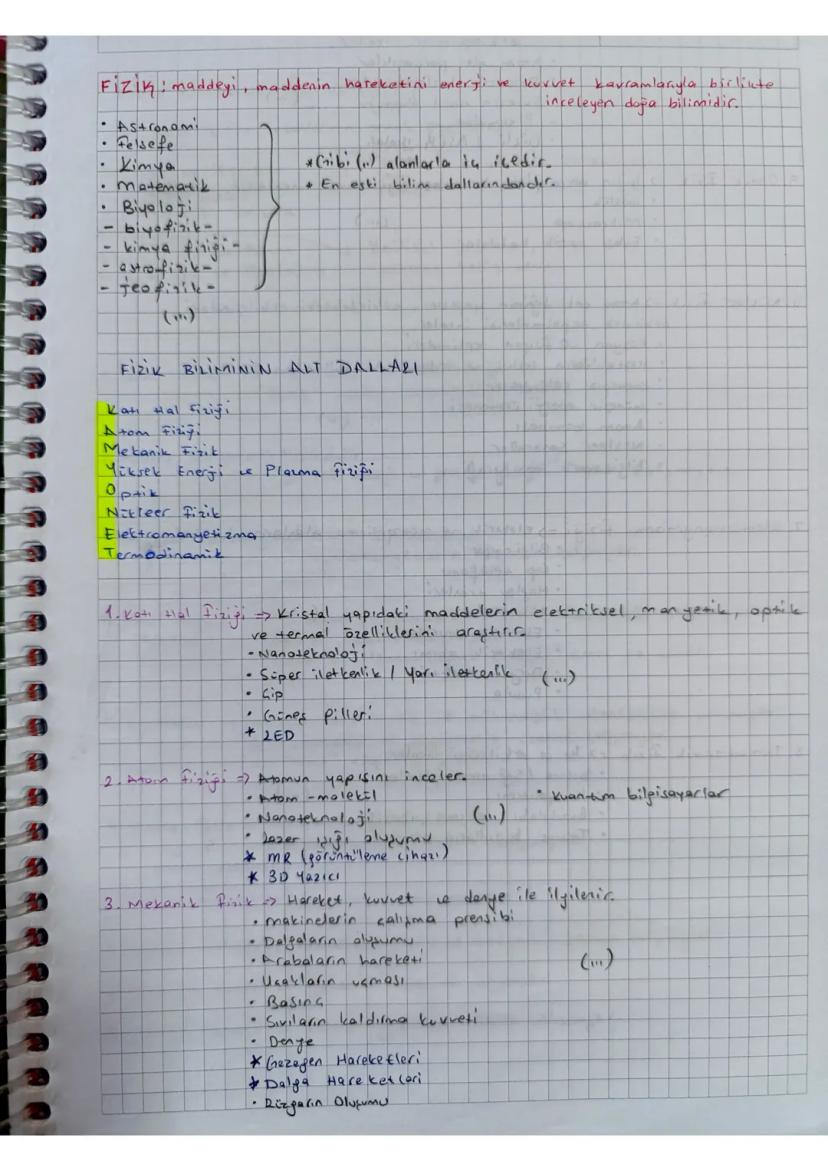 FİZİK: maddeyi, maddenin hareketini enerji ve kuvvet kavramlarıyla birlikte
inceleyen doğa bilimidir.
• Astronomi
• Felsefe
• Kimya
• Matematik
• Biyoloji
- biyofizik -
- kimya fiziği -
- astrofizik -
- jeofizik -
(...)
* Gibi (...) alanlarla iç içedir.
* En eski bilim dallarındandır.
FİZİK BİLİMİNİN ALT DALLARI
Katı Hal Fiziği
Atom Fiziği
Mekanik Fizik
Yüksek Enerji ve Plazma Fiziği
Optik
Nükleer Fizik
Elektromanyetizma
Termodinamik
1. Katı Hal Fiziği => Kristal yapıdaki maddelerin elektriksel, manyetik, optik
ve termal özelliklerini araştırır.
• Nanoteknoloji
• Süper iletkenlik / Yarı iletkenlik (...)
• Çip
• Güneş pilleri
* LED
2. Atom Fiziği => Atomun yapısını inceler.
• Atom - molekül
• Kuantum bilgisayarlar
• Nanoteknoloji (...)
• Lazer ışığı oluşumu
* MR (görüntüleme cihazı)
* 3D Yazıcı
3. Mekanik Fizik => Hareket, kuvvet ve denge ile ilgilenir.
• makinelerin çalışma prensibi
• Dalgaların oluşumu
• Arabaların hareketi (...)
• Uçakların uçması
• Basınç
• Sıvıların kaldırma kuvveti
• Denge
* Gezegen Hareketleri
* Dalga Hareketleri
• Rüzgarın Oluşumu